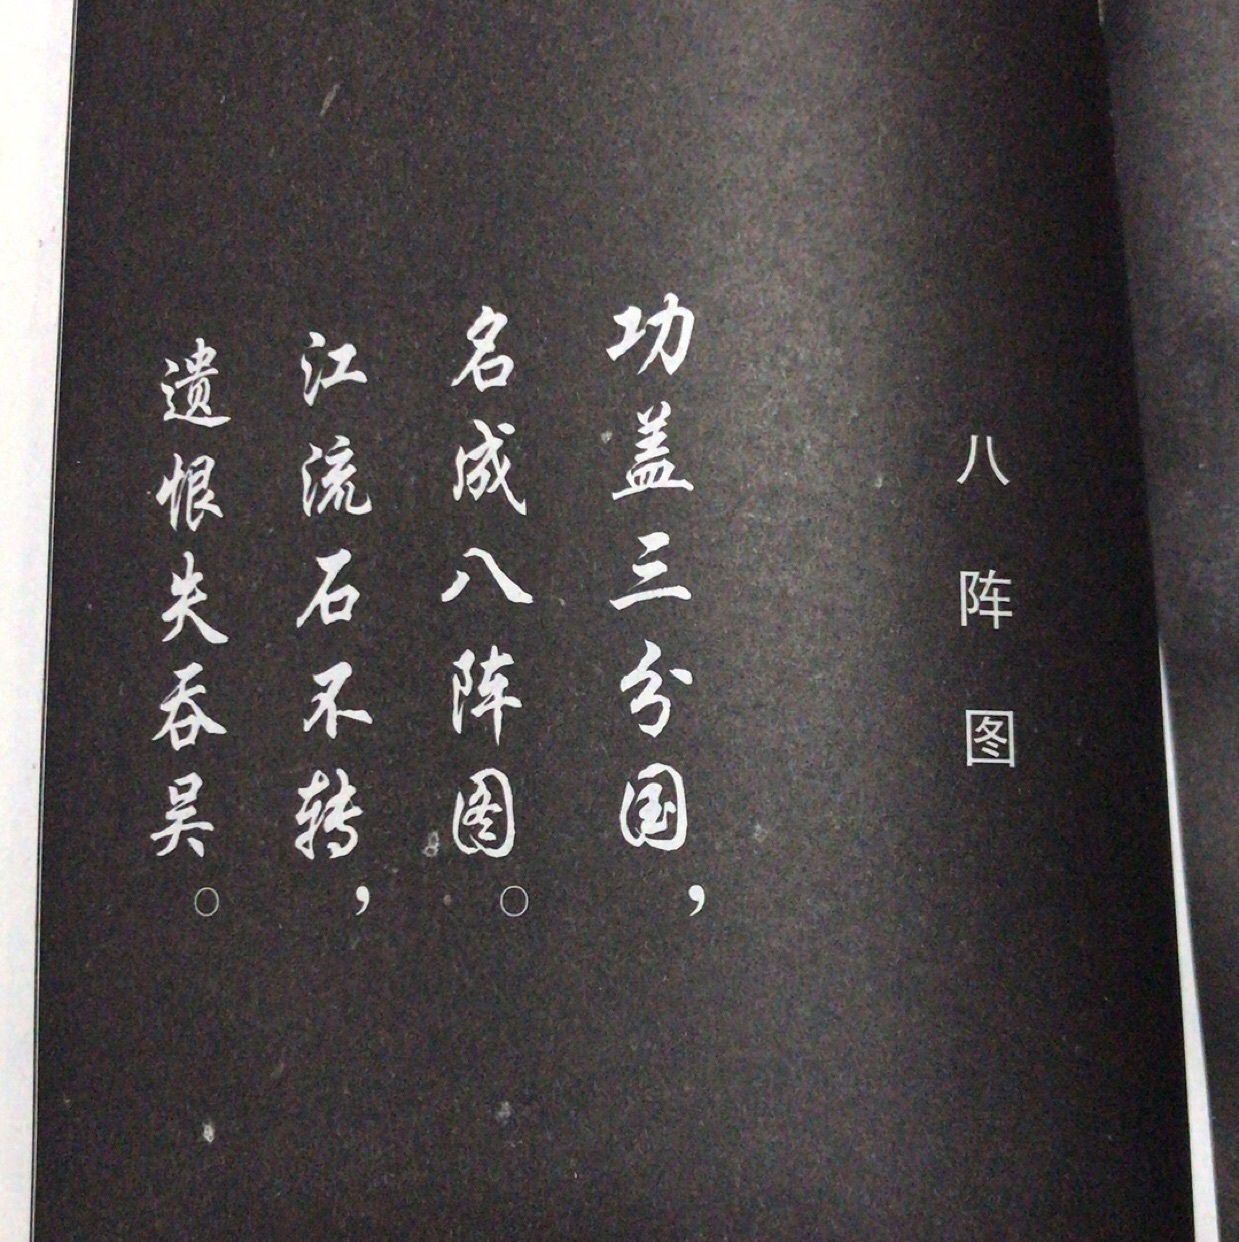 八阵图
功盖三分国，
名成八阵图。
江流石不转，
遗恨失吞吴。